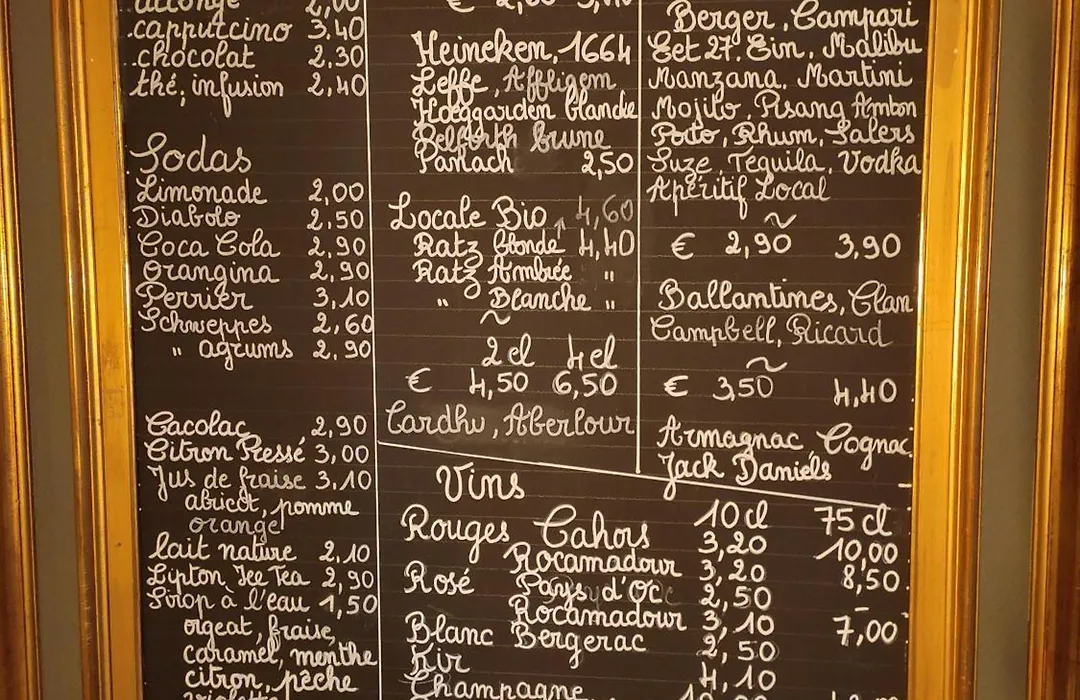 allongé 2,00
cappuccino 3,40
chocolat 2,30
thé, infusion 2,40
Sodas
Limonade 2,00
Diabolo 2,50
Coca Cola 2,90
Orangina 2,90
Perrier 3,10
Schweppes 2,60
" agrums 2,90
Cacolac 2,90
Citron Pressé 3,00
Jus de fraise 3,10
abricot, pomme
orange
lait nature 2,10
Lipton Ice Tea 2,90
Sirop à l'eau 1,50
orgeat, fraise,
caramel, menthe
citron, pèche
violette
€
Heineken, 1664
Leffe, Affligem
Hoeggarden blanche
Pelforth brune
Panach 2,50
Locale Bio 4,60
Ratz blonde 4,40
Ratz Ambrée "
" Blanche "
~
2 cl 4 cl
€ 4,50 6,50
Cardhu, Aberlour
Berger, Campari
Get 27. Gin, Malibu
Manzana, Martini
Mojito, Pisang Ambon
Poto, Rhum, Salers
Suze, Téquila, Vodka
Apéritif Local
~
€ 2,90 3,90
Ballantines, Clan
Campbell, Ricard
~
€ 3,50 4,40
Armagnac Cognac
Jack Daniels
Vins
10 cl 75 cl
Rouges Cahors 3,20 10,00
Rocamadour 3,20 8,50
Rosé Pays d'Oc 2,50 -
Rocamadour 3,10 7,00
Blanc Bergerac 2,50
Kir 4,10
Champagne